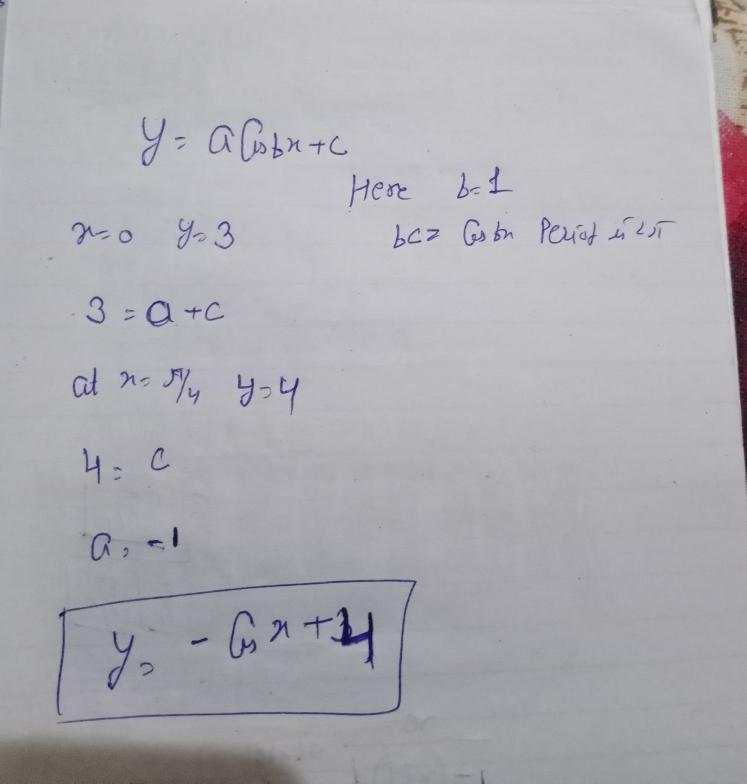 y = a Cos bx + c
Here b = 1
x = 0 y = 3
bcz Cos bx Period is 2π
3 = a + c
at x = π/4 y = 4
4 = c
a = -1
y = - Cos x + 4